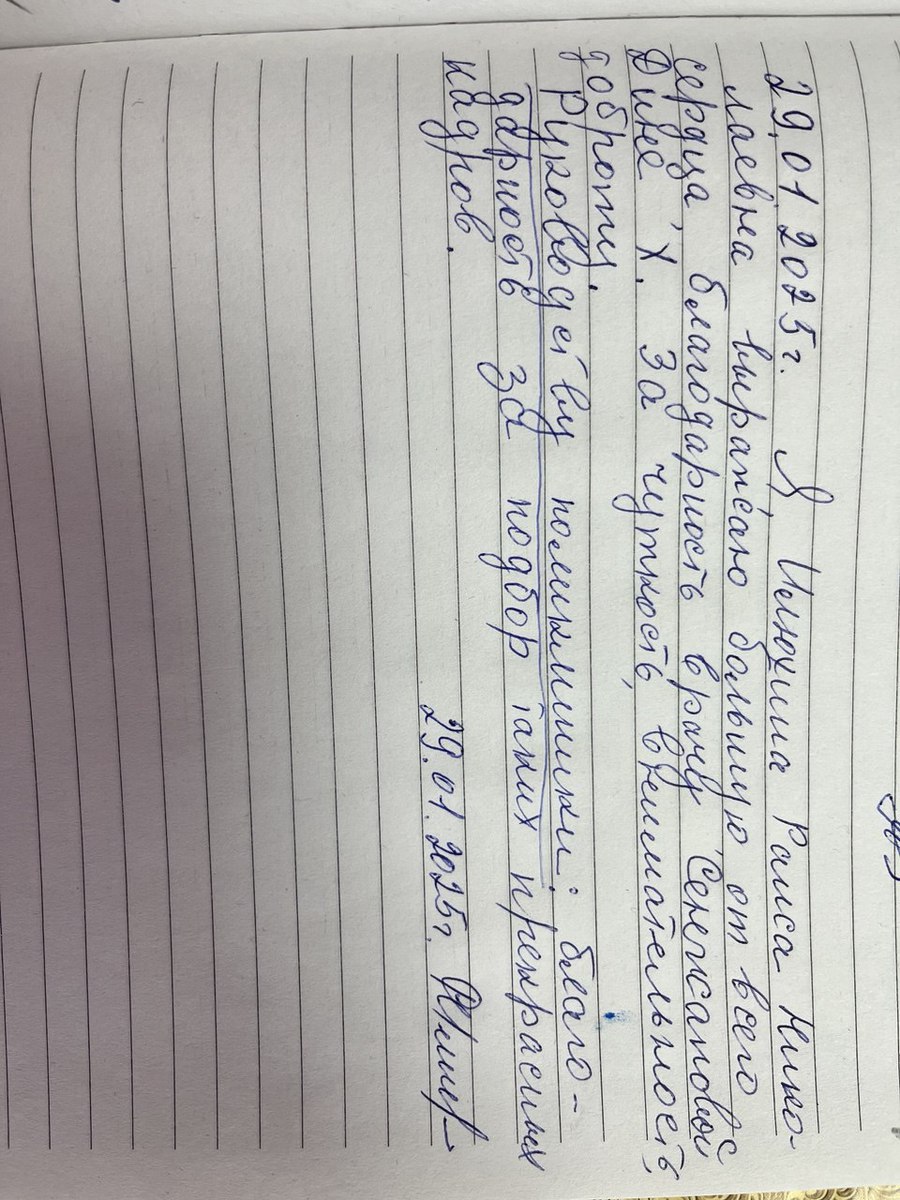 29.01.2025г. Я, Илюхина Раиса Нико-
лаевна выражаю большую от всего
сердца, благодарность врачу Сережановой С
Дине Х. За чуткость, внимательность,
доброту.
Руководству поликлиники: благо-
дарность за подбор таких прекрасных
кадров.
29.01.2025г.